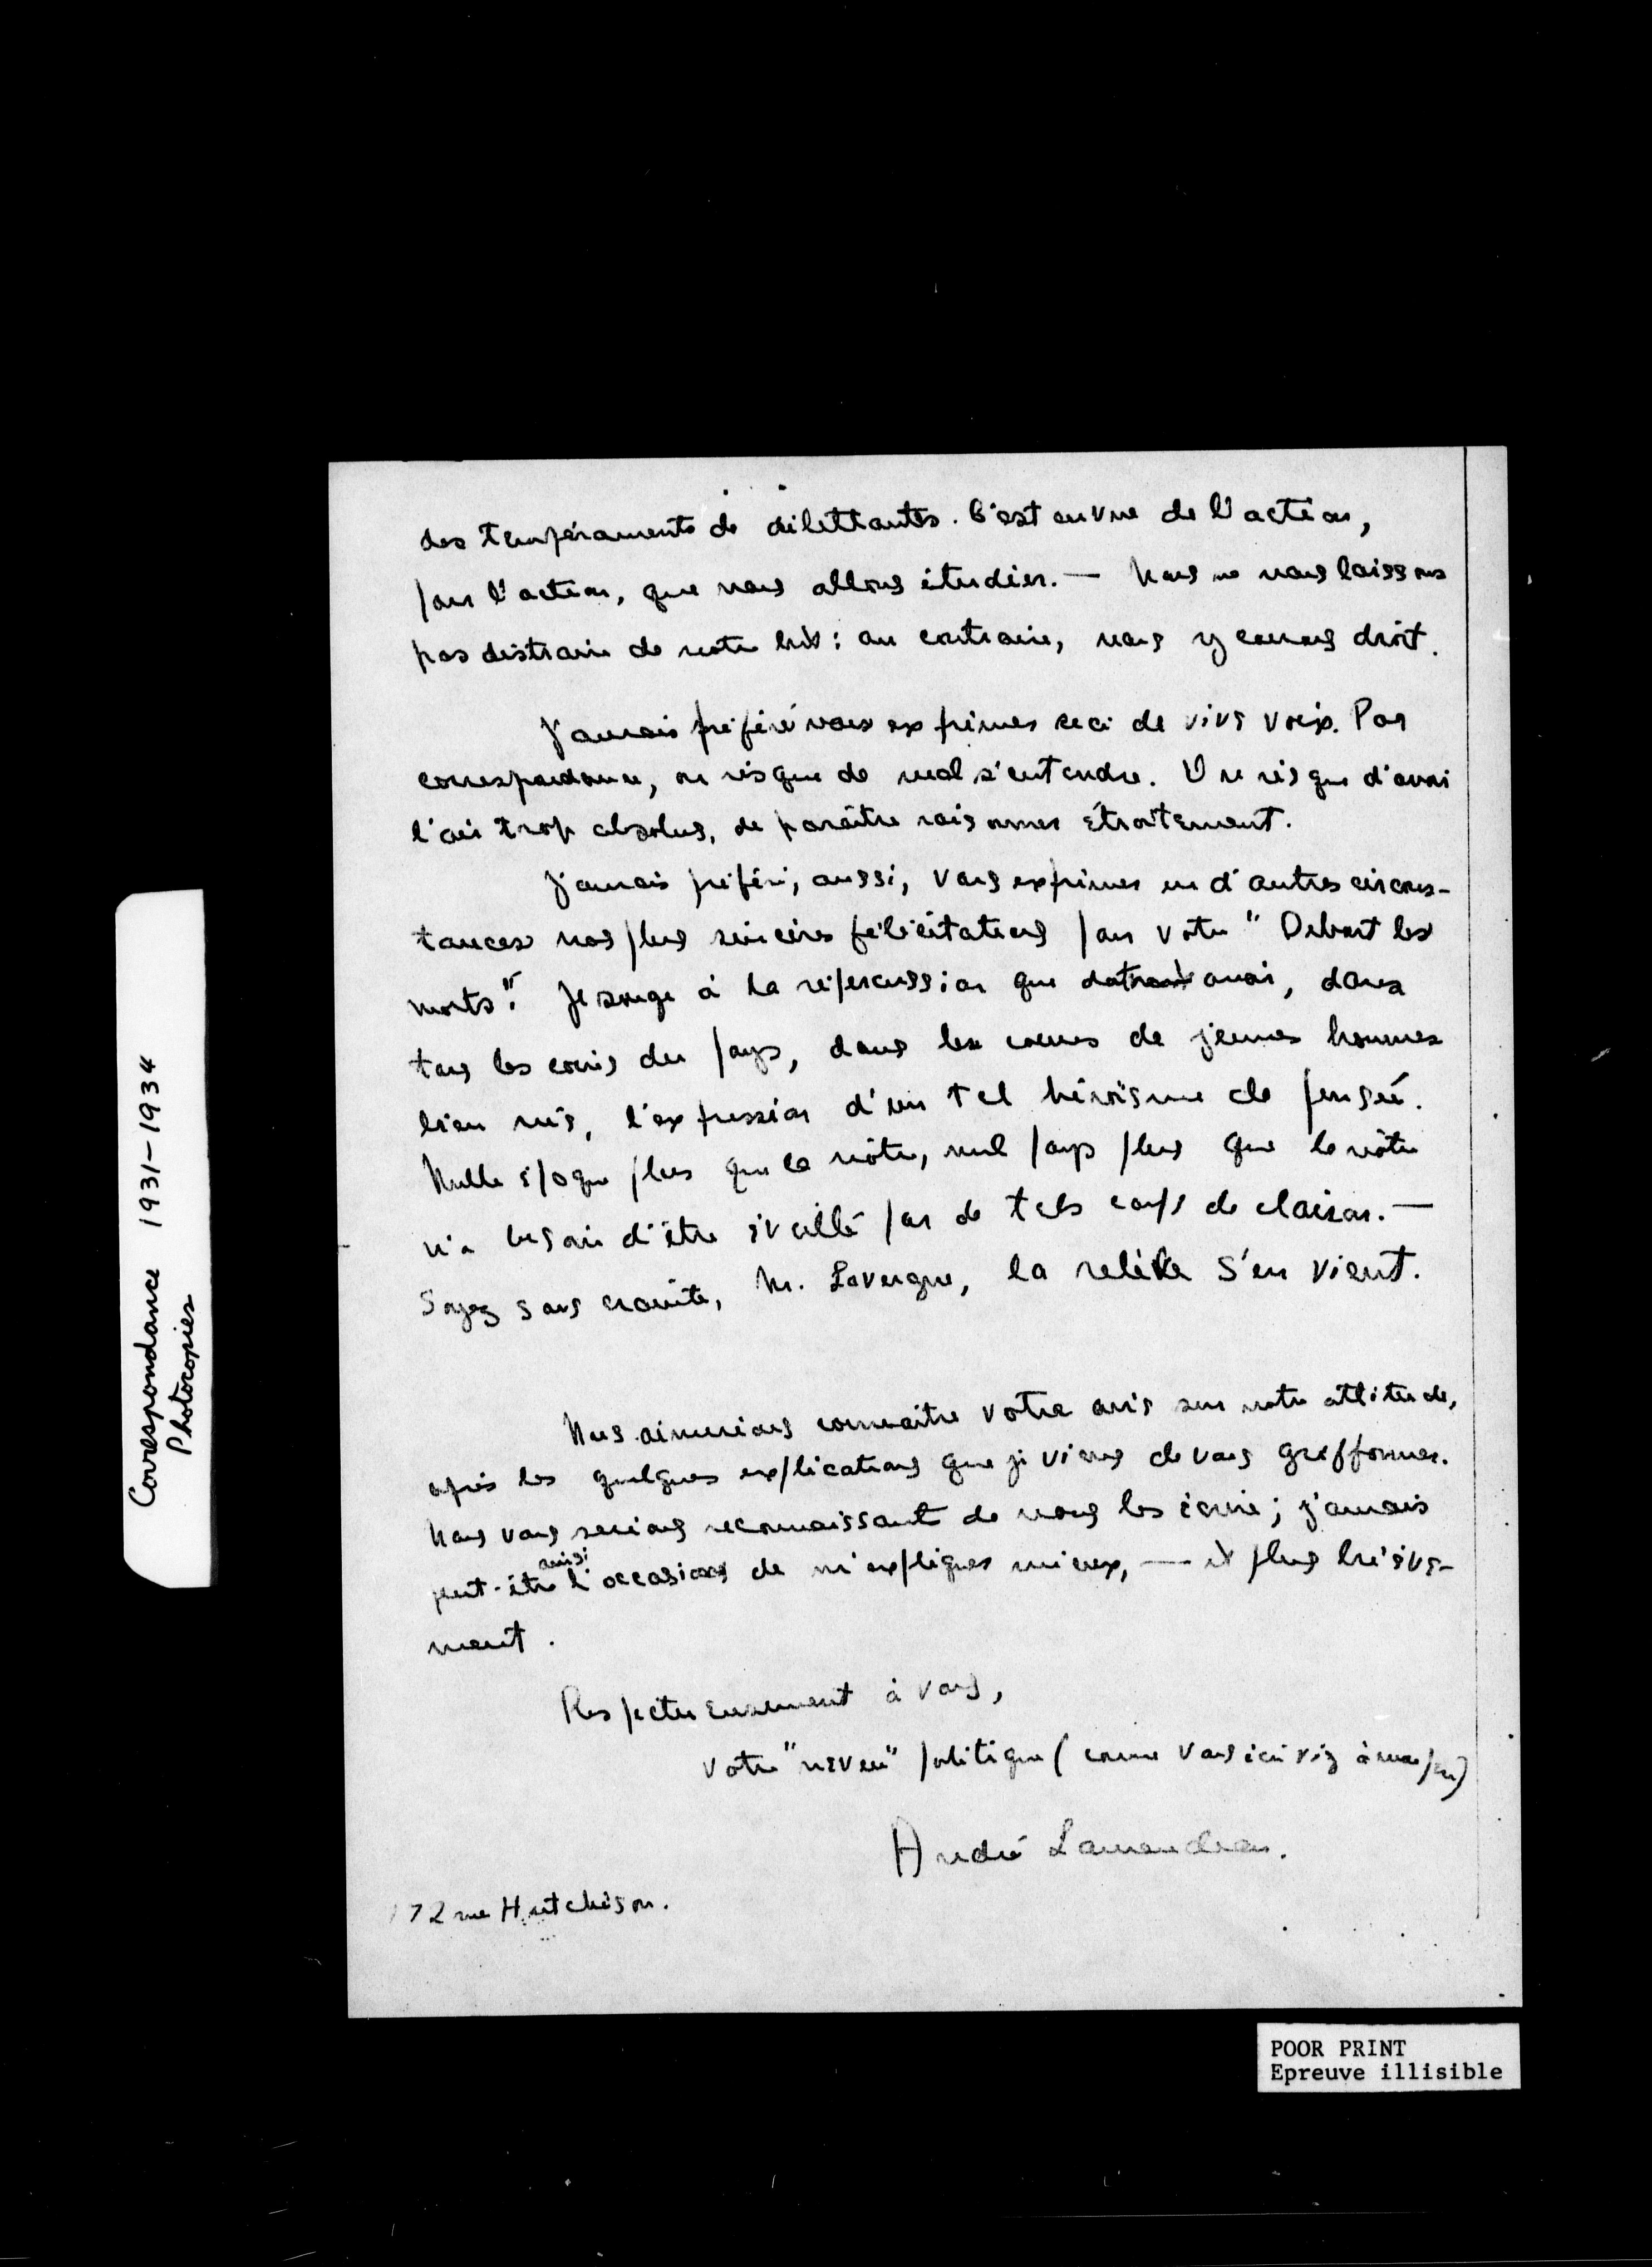 des tempéraments de dilettantes. C'est en vue de l'action,
pour l'action, que nous allons étudier. — Nous ne nous laissons
pas distraire de notre but : au contraire, nous y courons droit.
J'aurais préféré vous exprimer ceci de vive voix. Par
correspondance, on risque de mal s'entendre. On risque d'avoir
l'air trop absolus, de paraître raisonner étroitement.
J'aurais préféré, aussi, vous exprimer en d'autres circons-
tances nos plus sincères félicitations pour votre "Debout les
morts". Je songe à la répercussion que doit avoir, dans
tous les coins du pays, dans les coeurs de jeunes hommes
bien nés, l'expression d'un tel héroïsme de pensée.
Nulle époque plus que la nôtre, nul pays plus que le nôtre
n'a besoin d'être éveillé par de tels coups de clairon. —
Soyez sans crainte, M. Lavergne, la relève s'en vient.
Nous aimerions connaître votre avis sur notre attitude,
après les quelques explications que je viens de vous griffonner.
Nous vous serions reconnaissants de nous les écrire ; j'aurais
peut-être ainsi l'occasion de m'expliquer mieux, — et plus briève-
ment.
Respectueusement à vous,
Votre "neveu" politique (comme vous écriviez à mon père)
André Laurendeau.
72 rue Hutchison.
Correspondance 1931-1934
Photocopies
POOR PRINT
Epreuve illisible